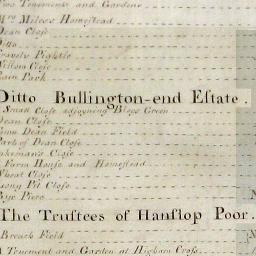 Two Tenements and Gardens
Mrs Miles's Homestead
Dean Close
Ditto
Pightle
Close
Park
Ditto Bullington-end Estate.
Small Close adjoyning Green
Dean Close
Dean Field
Part of Dean Close
Close
A Farm House and Homestead
Wheat Close
Long Pit Close
Piece
The Trustees of Hanslop Poor.
Breach Field
A Tenement and Garden at Higham Cross